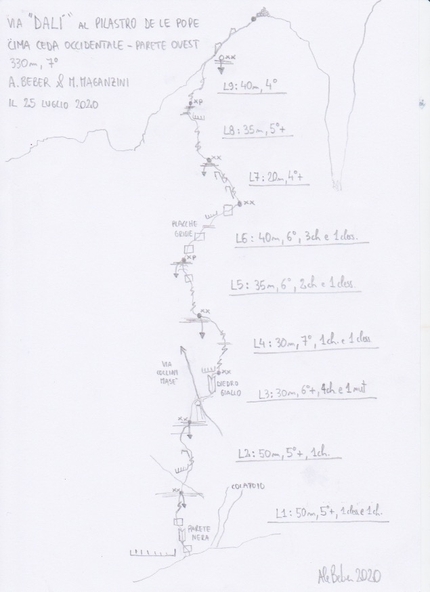 VIA "DALÍ" AL PILASTRO DE LE POPE
CIMA CEDA OCCIDENTALE - PARETE OVEST
330m, 7°
A. BEBER & M. MAGANZINI
IL 25 LUGLIO 2020
L9: 40m, 4°
L8: 35m, 5°+
L7: 20m, 4°+
PLACCHE
GRIGIE
L6: 40m, 6°, 3ch e 1clos.
L5: 35m, 6°, 2ch e 1clos.
L4: 30m, 7°, 1ch. e 1clos
VIA
DIEDRO
GIALLO
L3: 30m, 6°+, 4ch e 1nut
L2: 50m, 5°+, 1ch.
COLATOIO
L1: 50m, 5°+, 1clos e 1ch.
PARETE
NERA
Ale Beber 2020